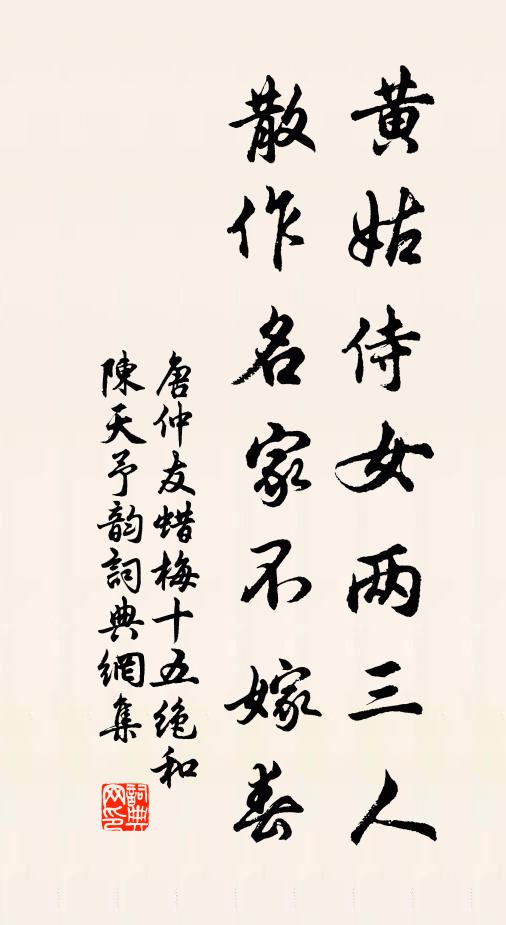 黄姑侍女两三人
散作名家不嫁春
唐仲友蜡梅十五绝和
陳天予韵詞典網集
詞典
网印